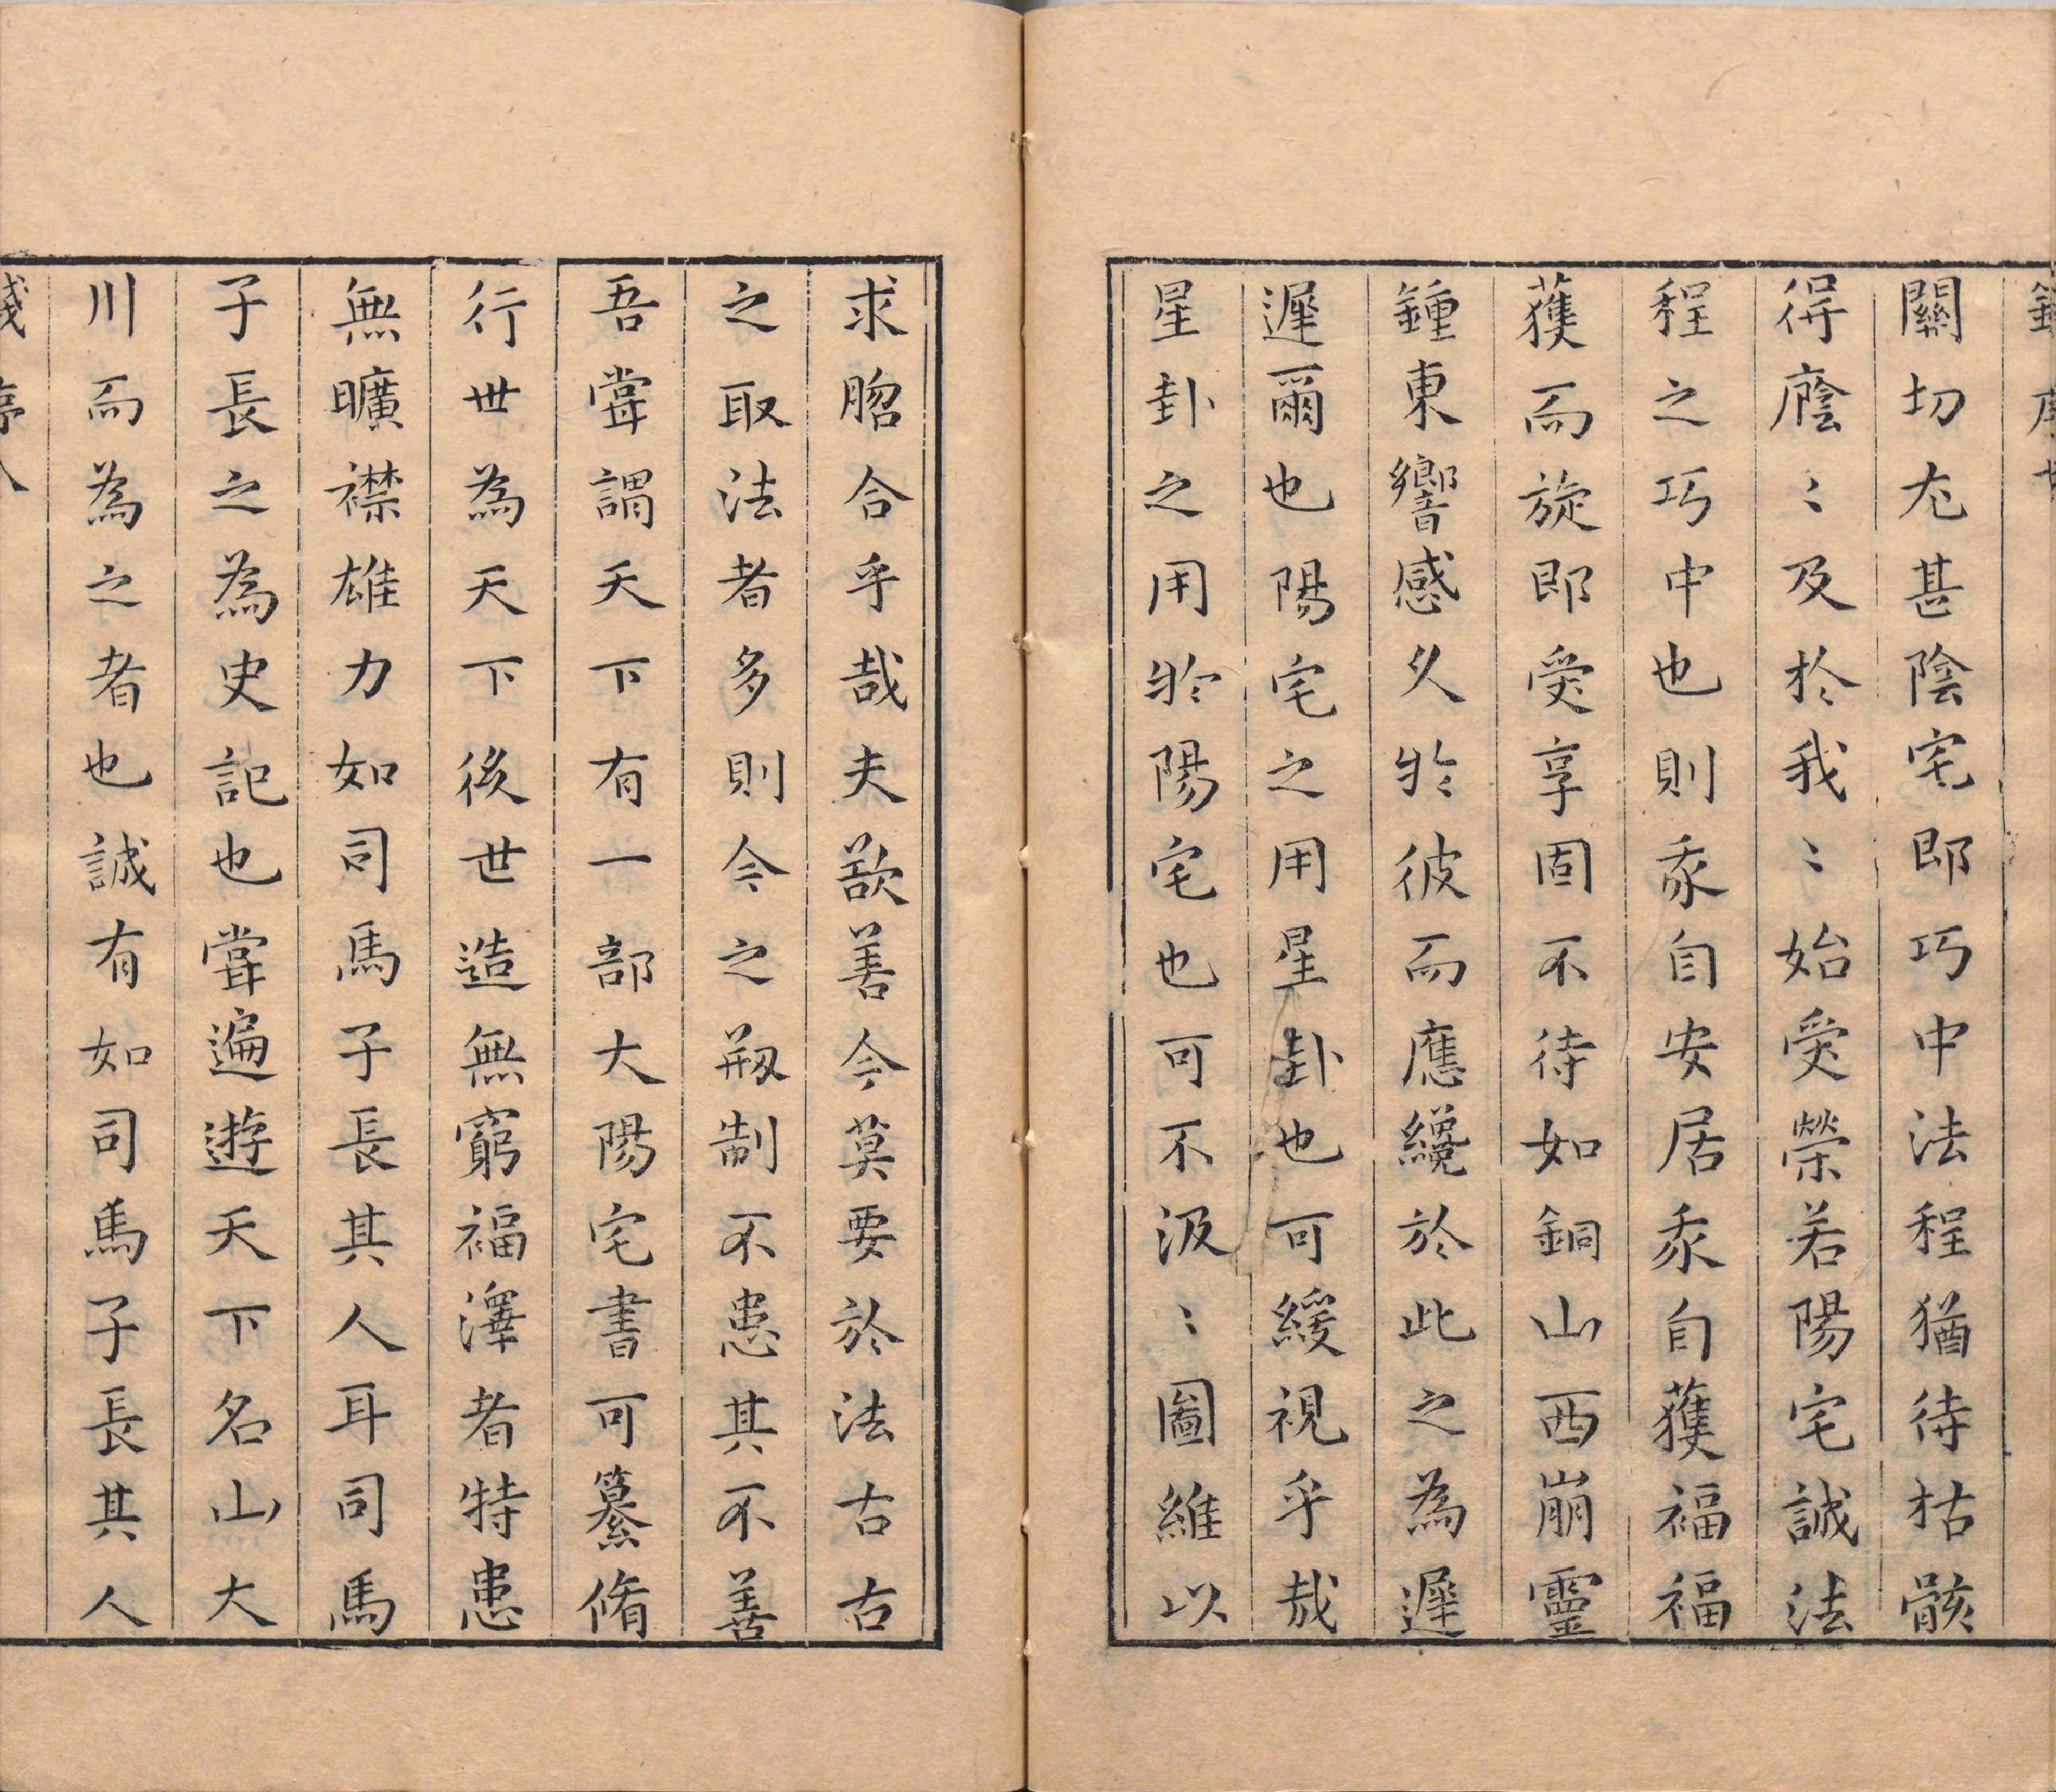 關切尤甚陰宅即巧中法程猶待枯骸
得廕〻及於我〻始受榮若陽宅誠法
程之巧中也則忝自安居忝自獲福福
獲而旋即受享固不待如銅山西崩靈
鍾東響感久於彼而應纔於此之為遲
遲爾也陽宅之用星卦也可緩視乎哉
星卦之用於陽宅也可不汲〻圖維以
求脗合乎哉夫欲善今莫要於法古古
之取法者多則今之剏制不患其不善
吾嘗謂天下有一部大陽宅書可纂脩
行世為天下後世造無窮福澤者特患
無曠襟雄力如司馬子長其人耳司馬
子長之為史記也嘗遍遊天下名山大
川而為之者也誠有如司馬子長其人